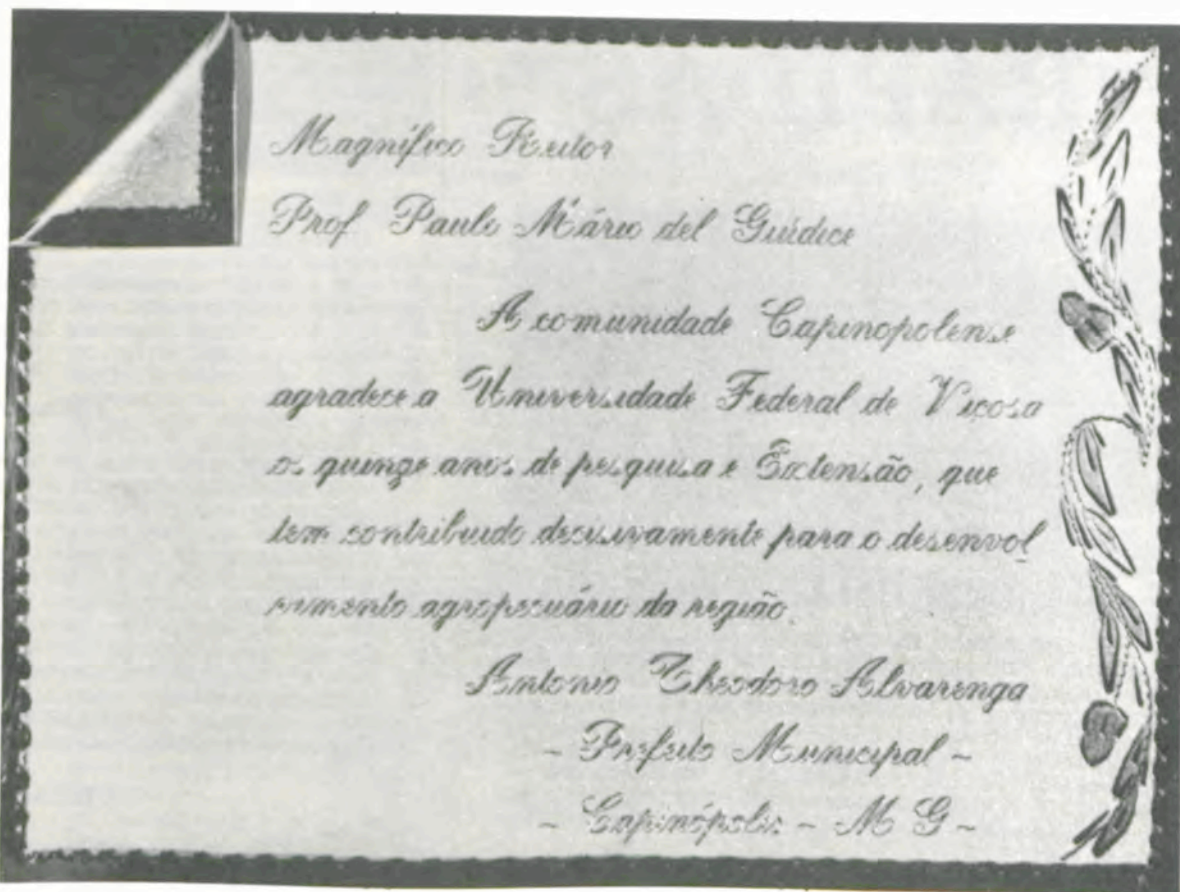 Magnífico Reitor
Prof Paulo Mário del Giúdice
A comunidade Capinopolense
agradece a Universidade Federal de Viçosa
os quinze anos de pesquisa e Extensão, que
tem contribuido decisivamente para o desenvol
vimento agropecuário da região.
Antonio Theodoro Alvarenga
- Prefeito Municipal -
- Capinópolis - M G -